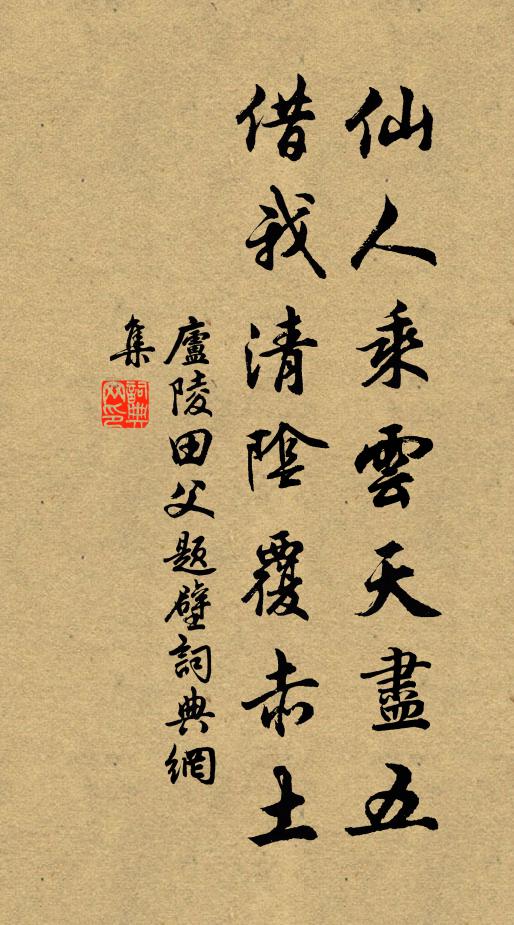 仙人乘雲天盡五
借我清陰覆赤土
廬陵田父題壁詞典網
集
詞典网印